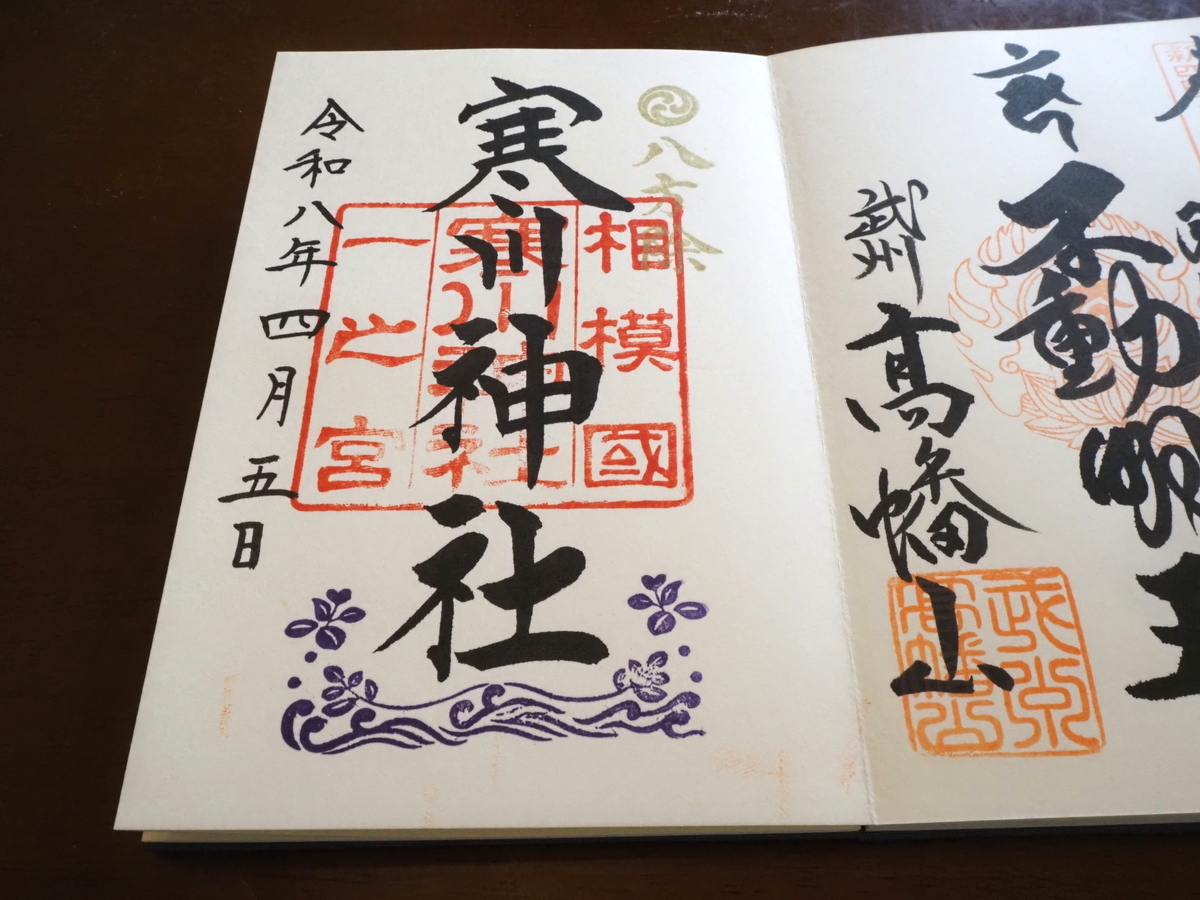 八方除
寒川神社
相模國
寒川神社
一之宮
令和八年四月五日
不動明王
武州
高幡山